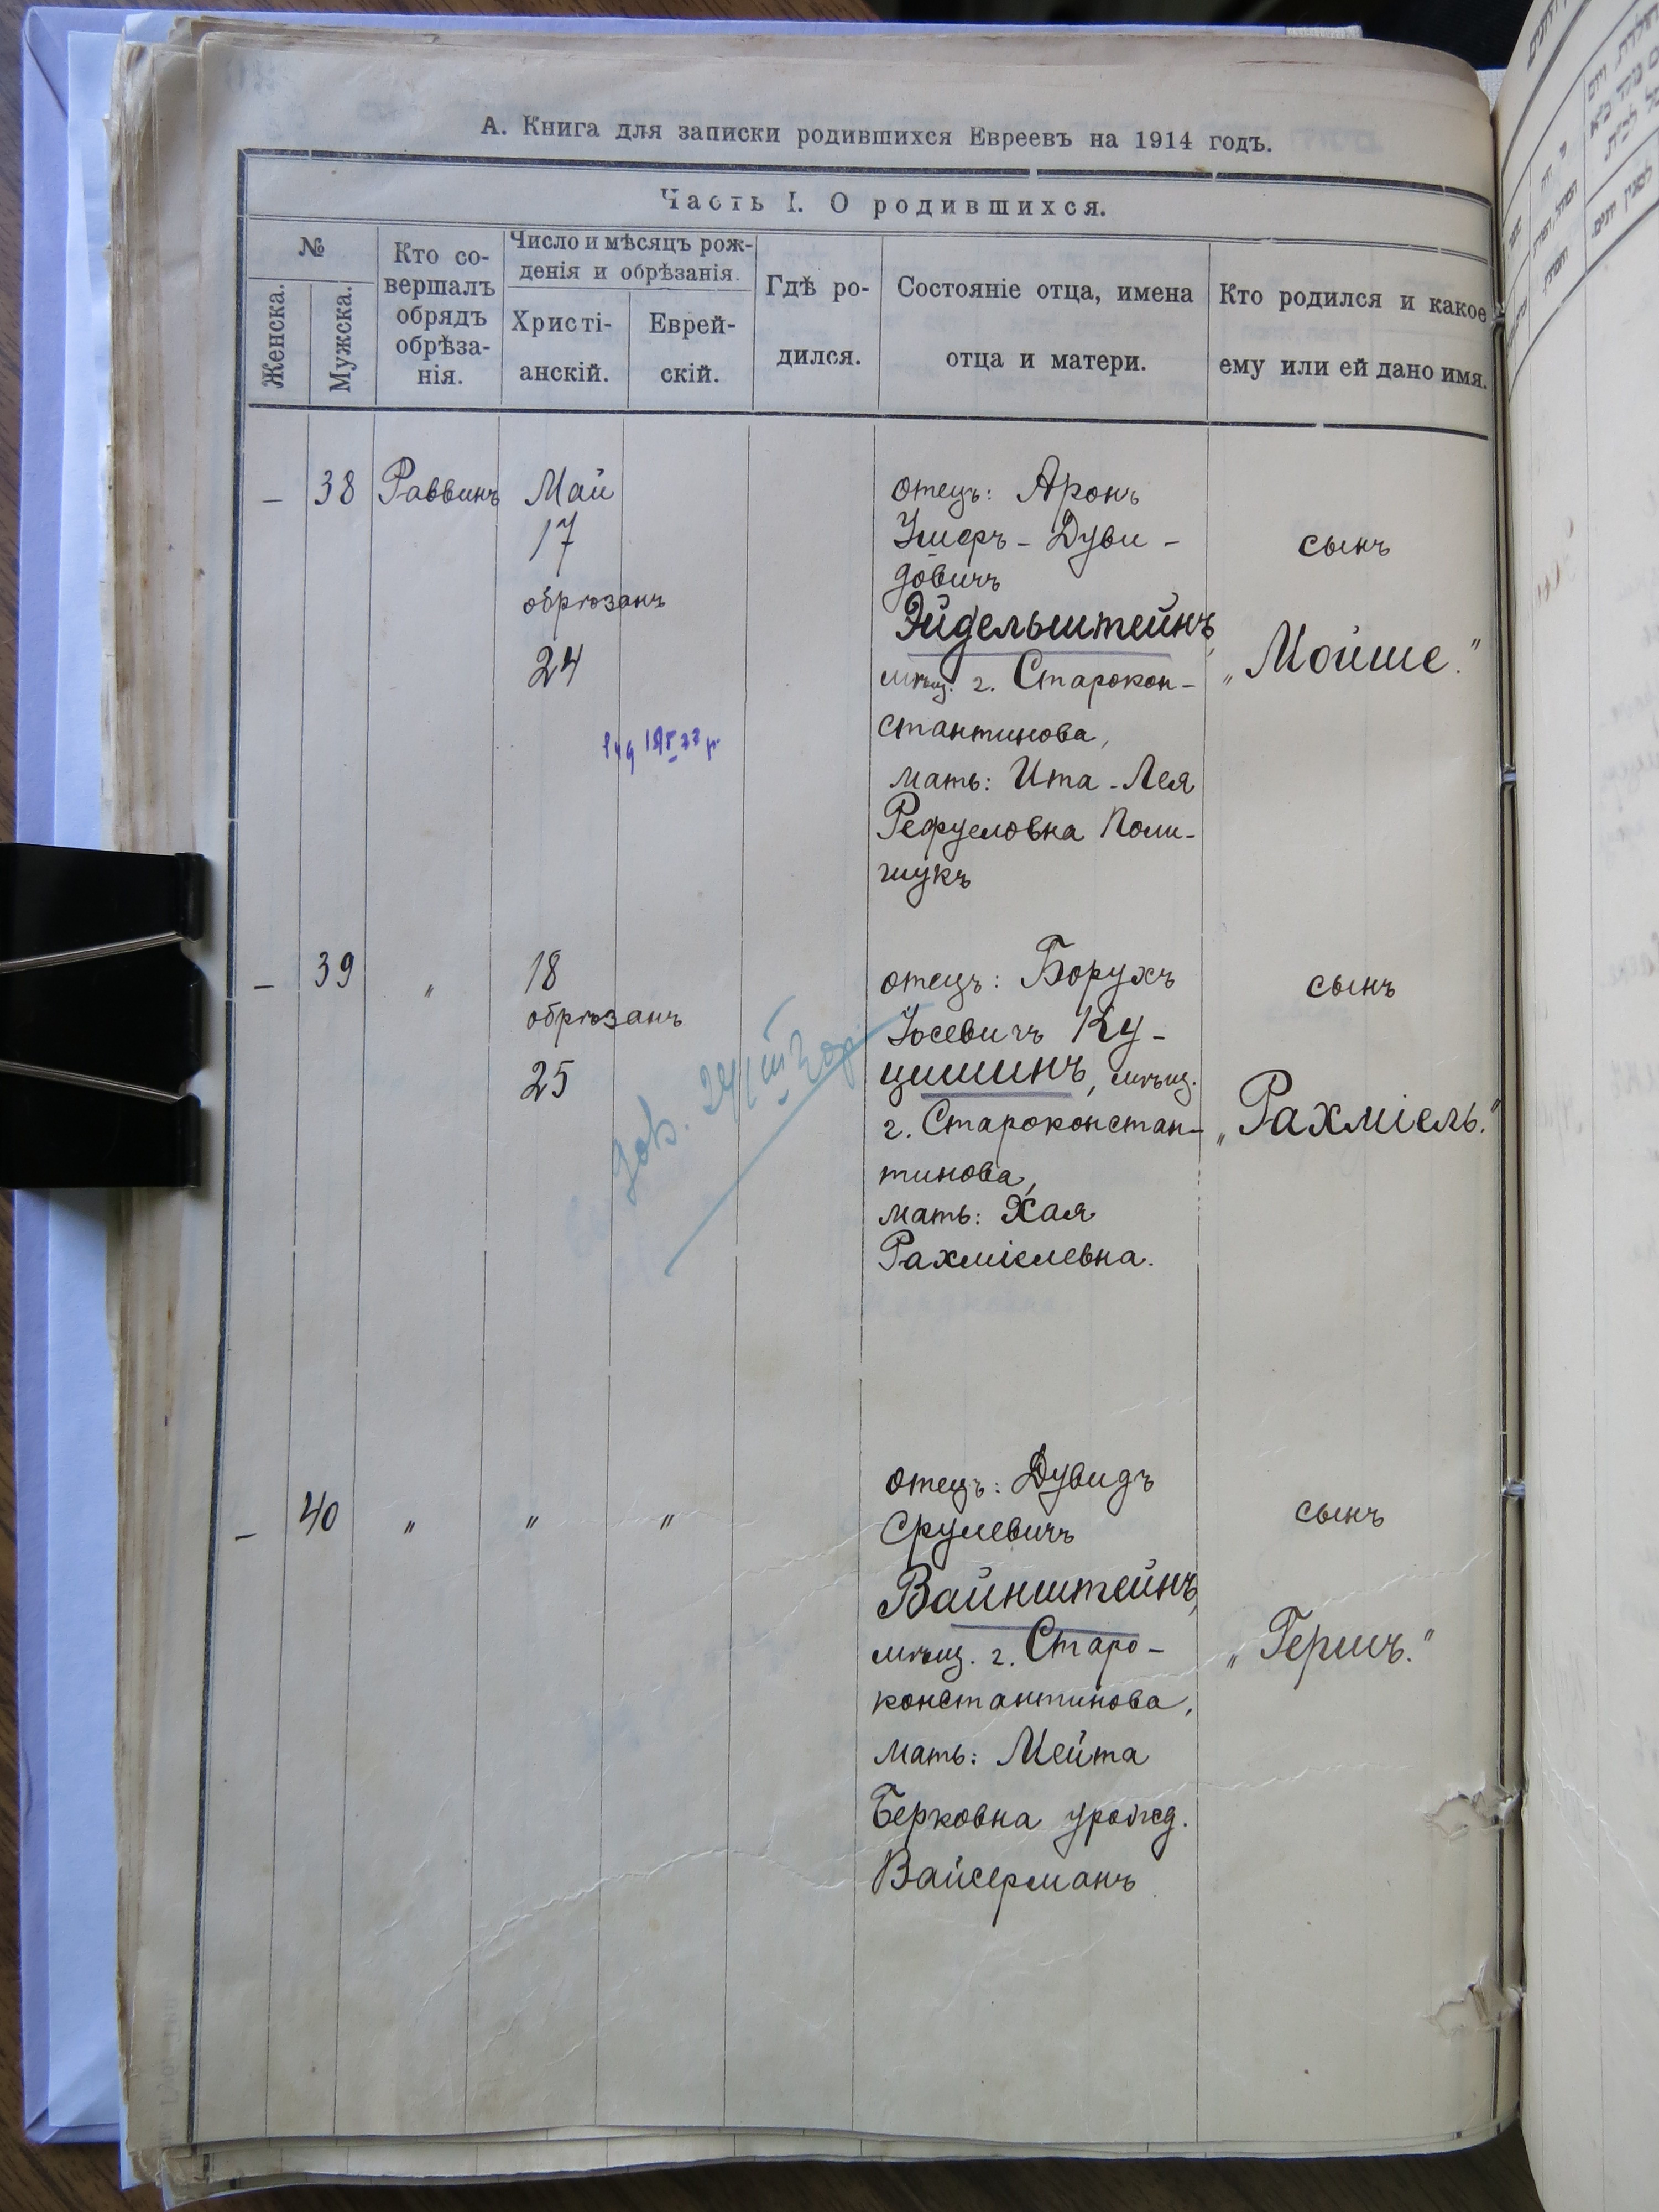 А. Книга для записки родившихся Евреевъ на 1914 годъ.
Часть I. О родившихся.
№
Женска.
Мужска.
Кто со-
вершалъ
обрядъ
обрѣза-
нія.
Число и мѣсяцъ рож-
денія и обрѣзанія.
Христі-
анскій.
Еврей-
скій.
Гдѣ ро-
дился.
Состояніе отца, имена
отца и матери.
Кто родился и какое
ему или ей дано имя.
– 38 Раввинъ Май
17
обрѣзанъ
24
отецъ: Аронъ
Дуви-
довичъ
Эйдельштейнъ,
мѣщ. г. Старокон-
стантинова,
мать: Ита-Лея
Рефуеловна Поли-
щукъ
сынъ
„Мойше."
– 39 „ 18
обрѣзанъ
25
отецъ: Борухъ
Іосевичъ Ку-
цишинъ, мѣщ.
г. Староконстан-
тинова,
мать: Хая
Рахміелевна.
сынъ
„Рахміель."
– 40 „ „ „
отецъ: Дувидъ
Срулевичъ
Вайнштейнъ,
мѣщ. г. Старо-
константинова,
мать: Мейта
Берковна урожд.
Вайсерманъ
сынъ
„Гершъ."